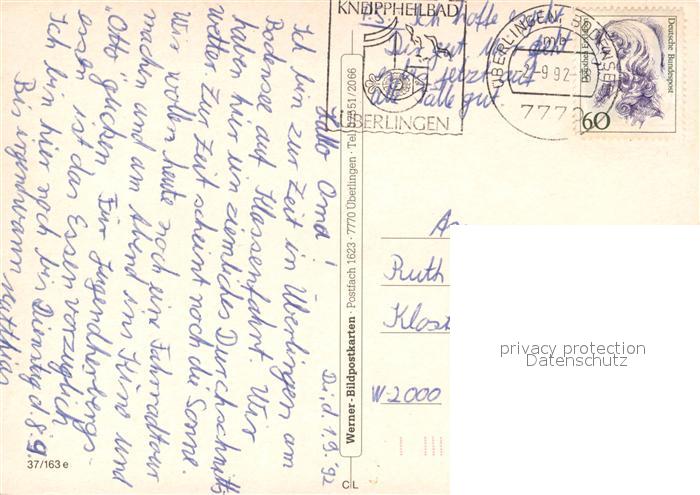 Di, d 1.9. '92
Hallo Omi!
Ich bin zur Zeit in Überlingen am
Bodensee auf Klassenfahrt. Wir
haben hier ein ziemliches Durchschnitts
wetter. Zur Zeit scheint noch die Sonne.
Wir wollen heute noch eine Fahrradtour
machen und am Abend ins Kino und
"Otto" gucken. Für Jugendherbergs-
essen ist das Essen vorzüglich
Ich bin hier noch bis Dienstag d. 8.9.
Bis irgendwann Matthias
P.S. Ich hoffe es geht
Dir gut
jetzt
alle Falle gut
KNEIPPHEILBAD
ÜBERLINGEN
ÜBERLINGEN, BODENSEE
9.92
777
Deutsche Bundespost
60
Werner-Bildpostkarten · Postfach 1623 · 7770 Überlingen · Tel. 07551/2066
Ruth
Klost
W-2000
privacy protection
Datenschutz
37/163 e
CL